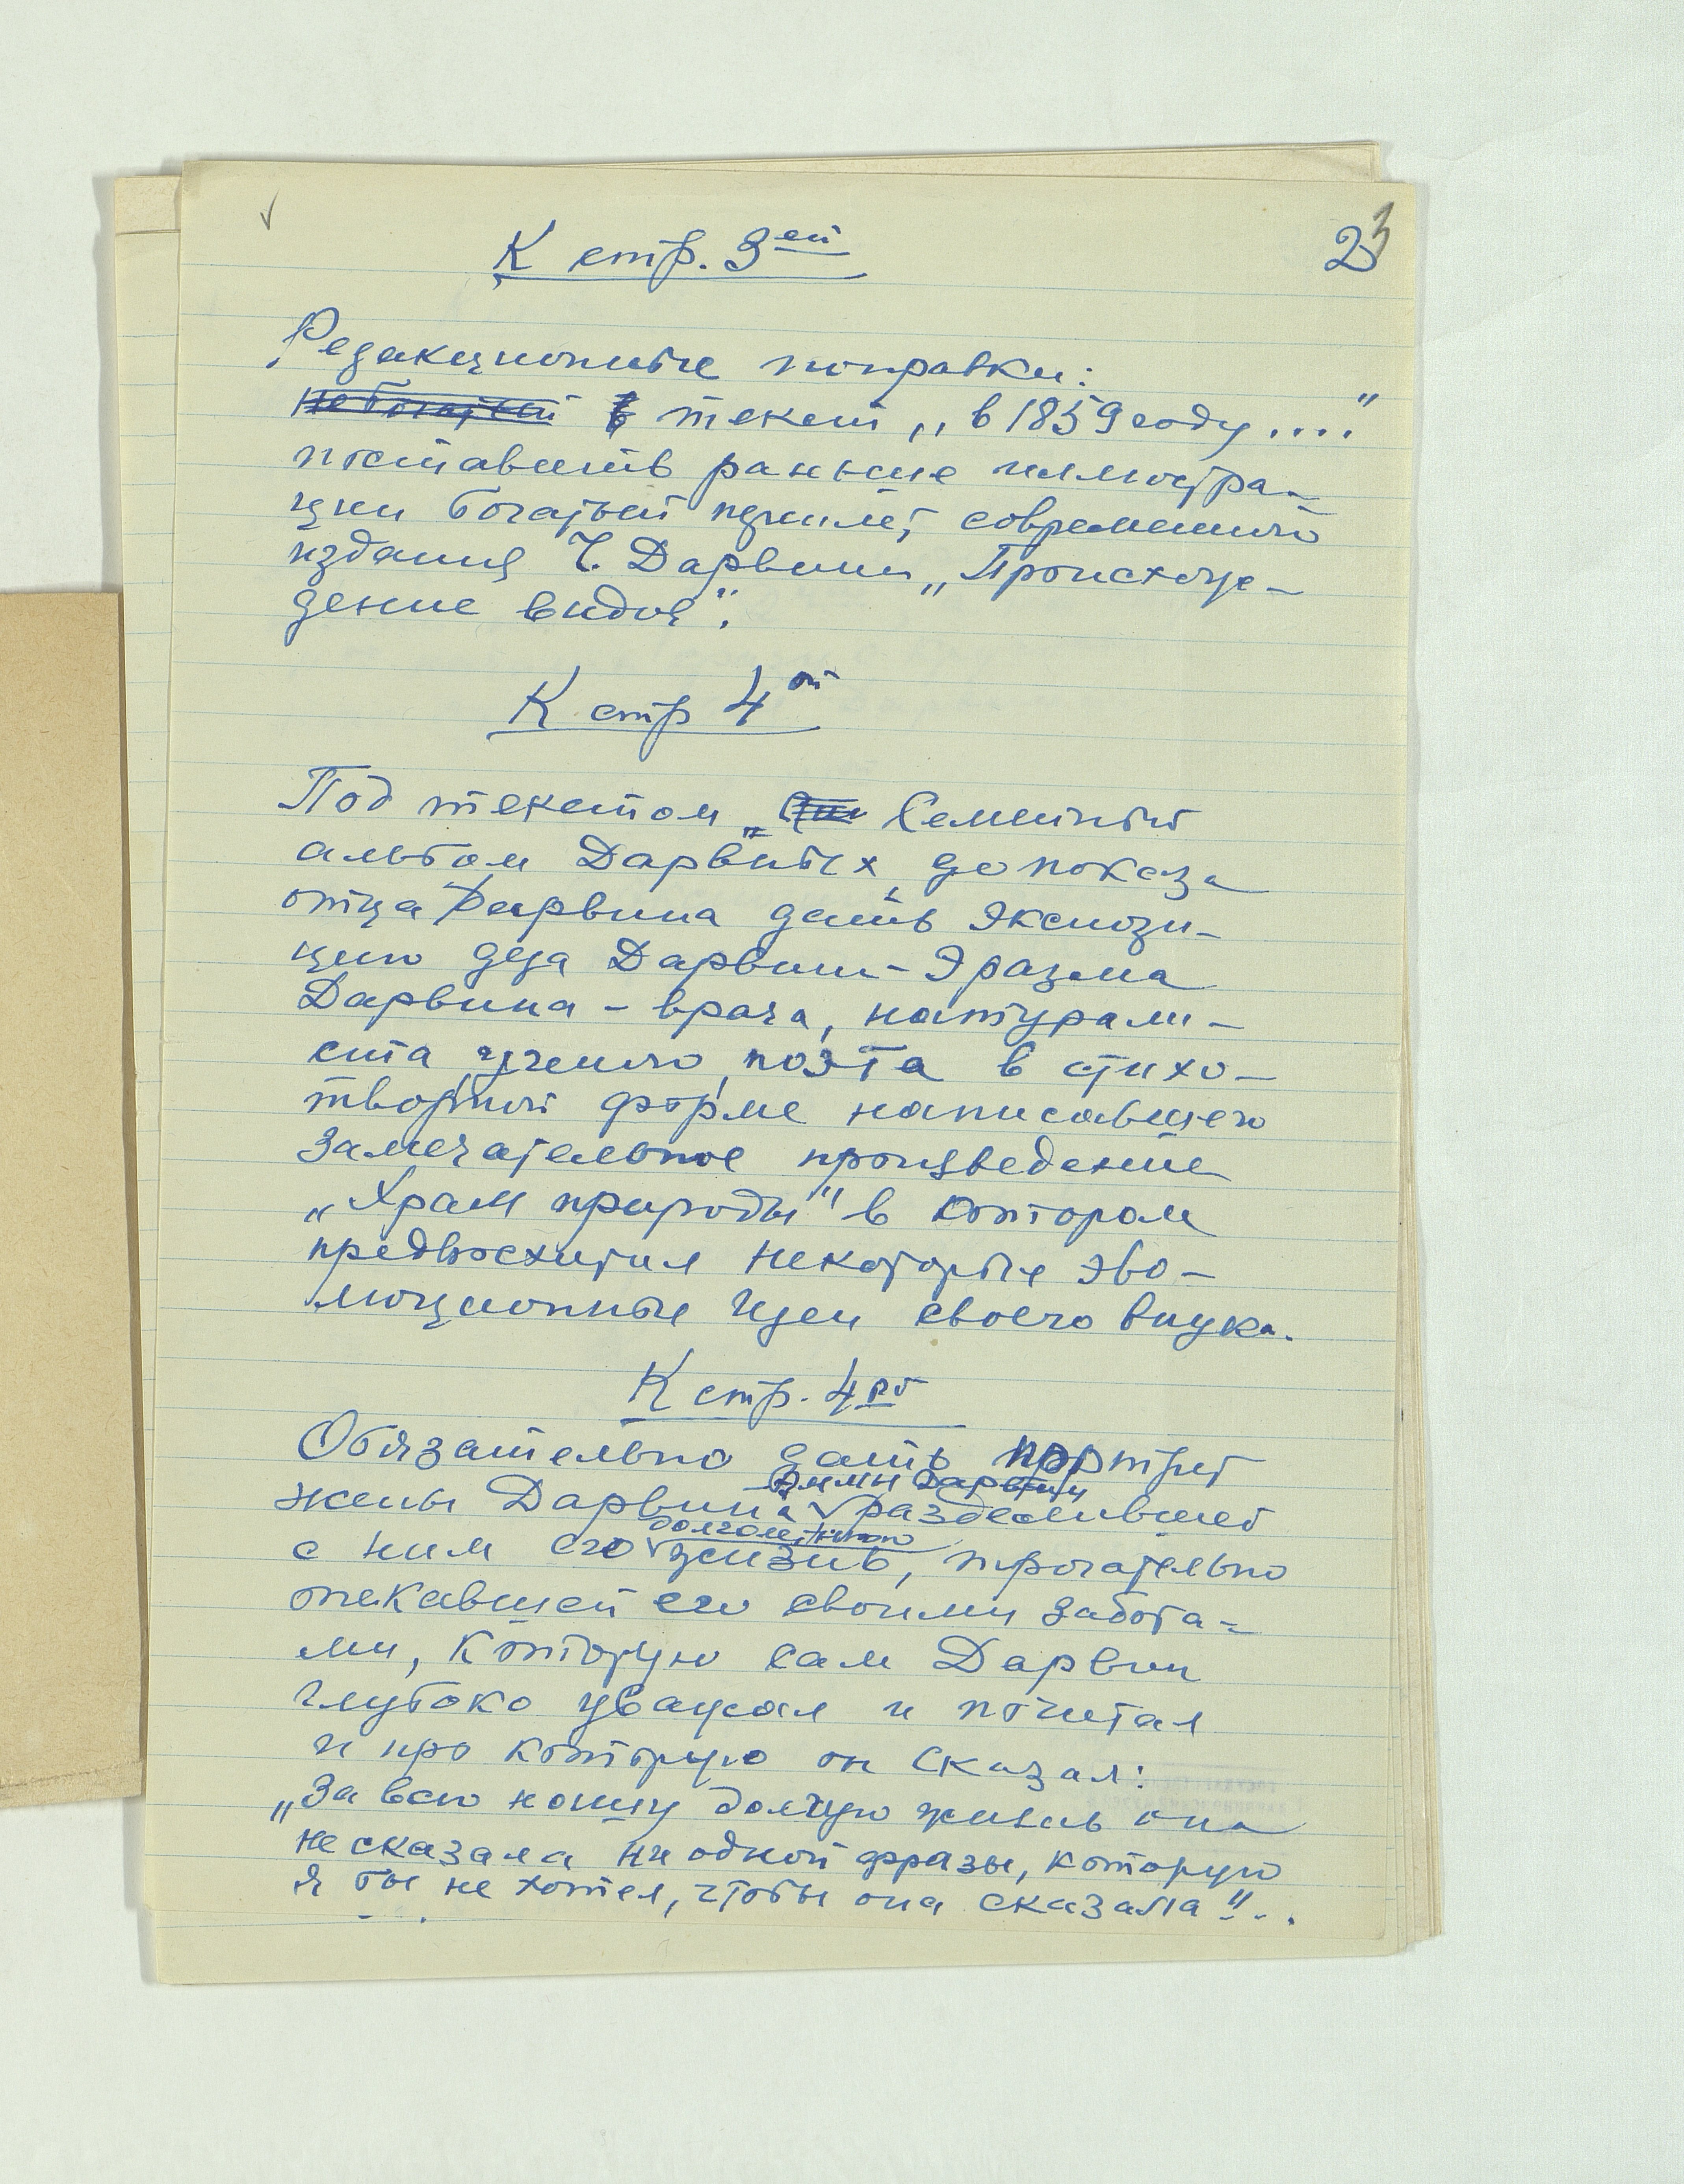 К стр. 3ей
23
Редакционные поправки:
небогатый в текст „в 1859 году ...."
поставить раньше иллюстра-
ции богатый переплет современного
издания Ч. Дарвина „Происхож-
дение видов".
К стр 4ой
Под текстом „ Семейный
альбом Дарвиных, до показа
отца Дарвина дать экспози-
цию деда Дарвина - Эразма
Дарвина - врача, натурали-
ста, ученого, поэта в стихо-
творной форме написавшего
замечательное произведение
„Храм природы" в котором
предвосхитил некоторые эво-
люционные идеи своего внука.
К стр. 4ой
Обязательно дать портрет
Эммы Дарвин
жены Дарвина разделившей
долголетнюю
с ним его жизнь, трогательно
опекавшей его своими забота-
ми, которую сам Дарвин
глубоко уважал и почитал
и про которую он сказал:
„За всю нашу долгую жизнь она
не сказала ни одной фразы, которую
я бы не хотел, чтобы она сказала"...